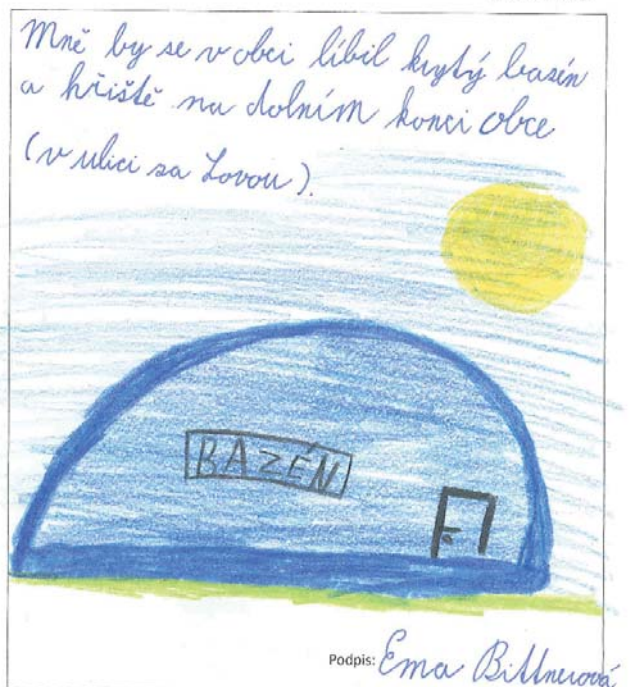 Mně by se v obci líbil krytý bazén
a hřiště na dolním konci obce
(v ulici za Lovou).
BAZÉN
Podpis: Ema Bittnerová